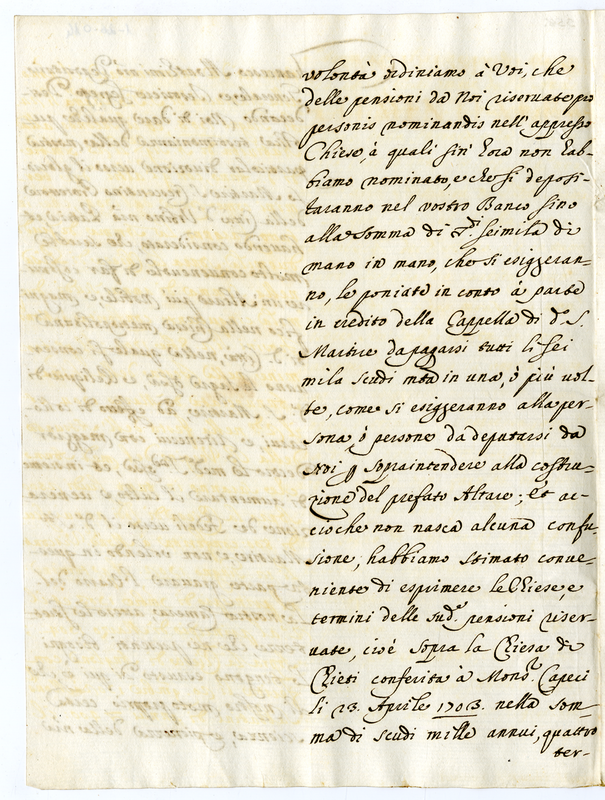 volontà ordiniamo à Voi, che
delle pensioni da Noi riservate pro
personis nominandis nell'appresso
Chiese, à quali sin' hora non hab-
biamo nominato, e che si deposi-
taranno nel vostro Banco sino
alla somma di seimila di
mano in mano, che si esiggeran-
no, le poniate in conto à parte
in credito della Cappella di d.º S.
Martire da pagarsi tutti li sei
mila scudi mta in una, ò più vol-
te, come si esiggeranno alla per-
sona, ò persone da deputarsi da
Noi p sopraintendere alla costru-
zione del prefato Altare; Et ac-
cioche non nasca alcuna confu-
sione, habbiamo stimato conve-
niente di esprimere le Chiese, e
termini delle sud.e pensioni riser-
vate, cioè sopra la Chiesa di
Chieti conferita à Mons.r Capeci
li 23. Aprile 1703. nella som-
ma di scudi mille annui, quattro
ter-